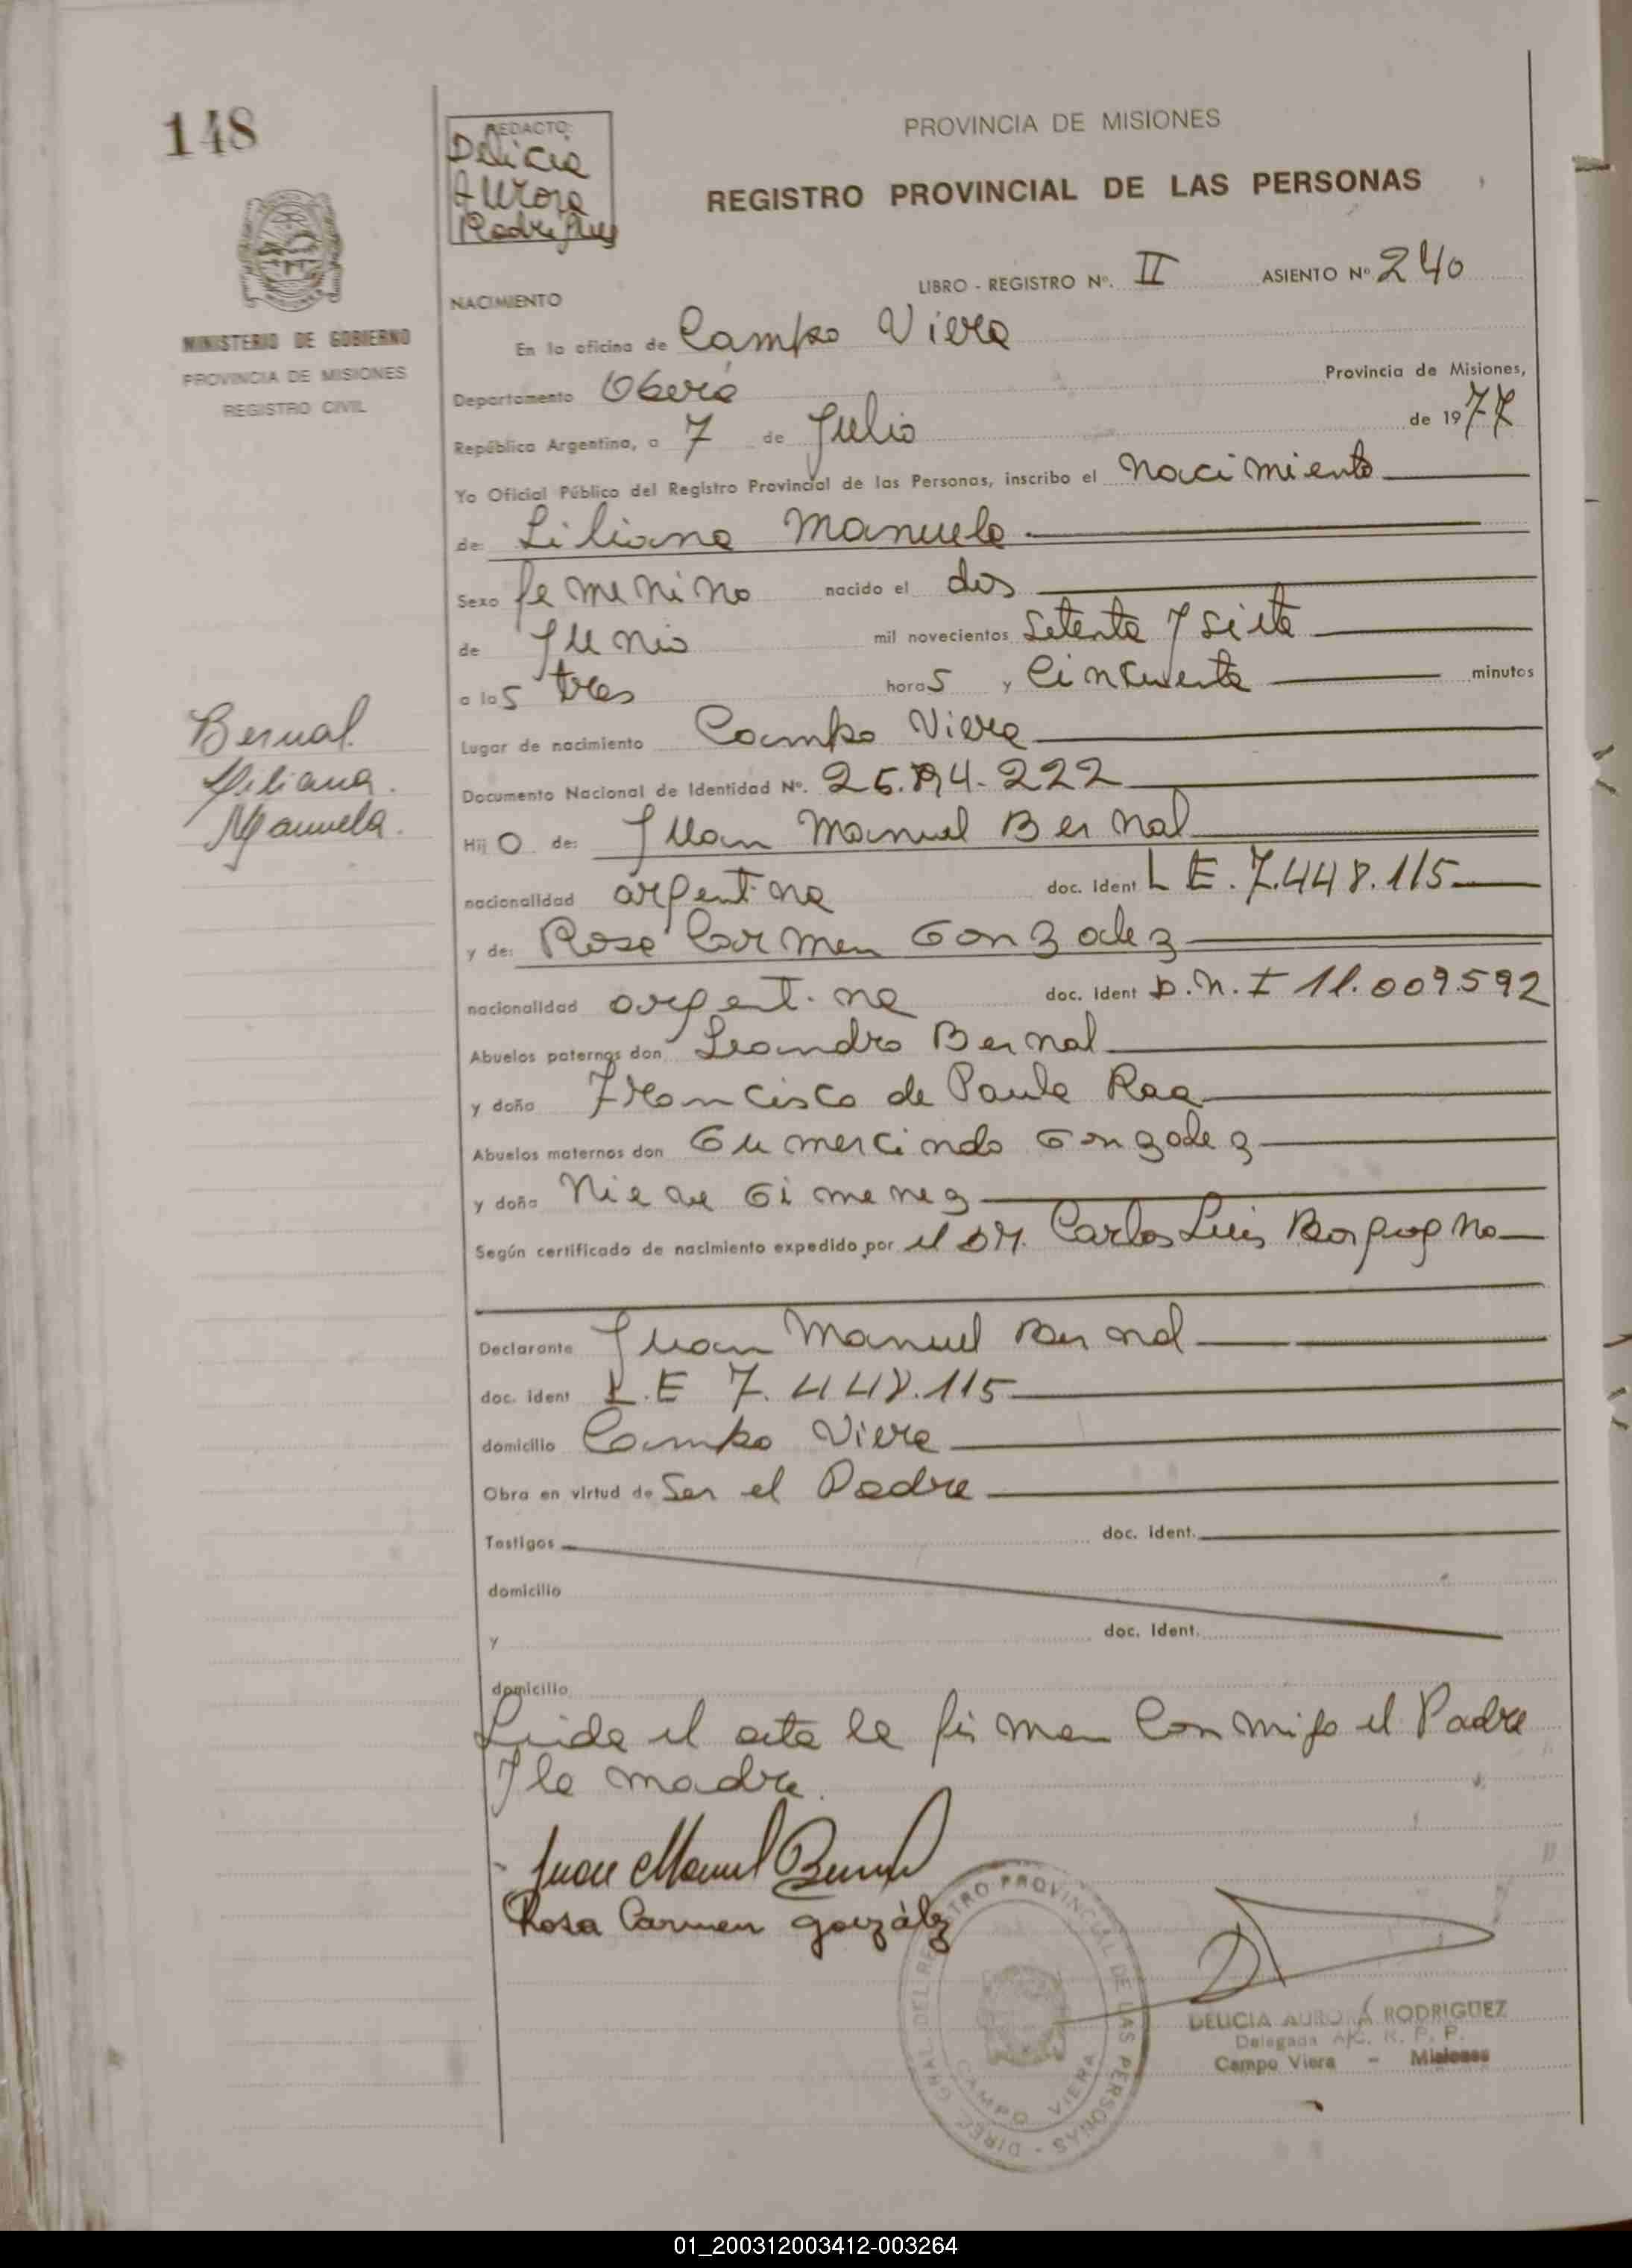 148
REDACTO:
Delicia
Aurora
Rodriguez
PROVINCIA DE MISIONES
REGISTRO PROVINCIAL DE LAS PERSONAS
LIBRO - REGISTRO Nº. II ASIENTO Nº 240
NACIMIENTO
MINISTERIO DE GOBIERNO
PROVINCIA DE MISIONES
REGISTRO CIVIL
En la oficina de Campo Viera
Departamento Oberá Provincia de Misiones,
República Argentina, a 7 de Julio de 1977
Yo Oficial Público del Registro Provincial de las Personas, inscribo el nacimiento
de: Liliana Manuela
Sexo femenino nacido el dos
de Junio mil novecientos setenta y siete
a las tres horas y cincuenta minutos
Lugar de nacimiento Campo Viera
Bernal
Liliana
Manuela.
Documento Nacional de Identidad Nº.
Hijo de: Juan Manuel Bernal
nacionalidad argentina doc. ident L E. 7.448.115
y de: Rosa Carmen Gonzalez
nacionalidad argentina doc. ident D.N.I 11.009.592
Abuelos paternos don Leandro Bernal
y doña Francisca de Paula
Abuelos maternos don Gumercindo Gonzalez
y doña Nieve Gimenez
Según certificado de nacimiento expedido por el DR. Carlos Luis Borgogno
Declarante Juan Manuel Bernal
doc. ident L.E 7.448.115
domicilio Campo Viera
Obra en virtud de Ser el Padre
Testigos doc. ident.
domicilio
y doc. ident.
domicilio
Leida el acta la firman conmigo el Padre
y la madre.
Juan Manuel Bernal
Rosa Carmen González
DIREC. GRAL. DEL REGISTRO PROVINCIAL DE LAS PERSONAS -
CAMPO VIERA
DELICIA AURORA RODRIGUEZ
Delegada A/C. R. P. P.
Campo Viera - Misiones
01_200312003412-003264